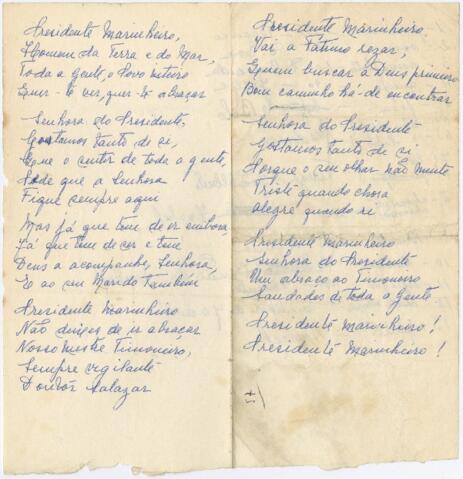 Presidente Marinheiro,
Homem da Terra e do Mar,
Toda a Gente, o Povo inteiro
Quer-te ver, quer-te abraçar
Senhora do Presidente,
Gostamos tanto de si,
Que o sentir de toda a gente,
Pede que a Senhora
Fique sempre aqui
Mas já que tem de ir embora
Já que tem de ser e tem
Deus a acompanhe, Senhora,
E ao seu Marido Também
Presidente Marinheiro
Não deixes de ir abraçar
Nosso mestre Timoneiro,
Sempre vigilante
Doutor Salazar
Presidente Marinheiro
Vai a Fátima rezar,
Quem buscar a Deus primeiro
Bom caminho há-de encontrar
Senhora do Presidente
Gostamos tanto de si
Porque o seu olhar não mente
Triste quando chora
Alegre quando ri
Presidente Marinheiro
Senhora do Presidente
Um abraço ao Timoneiro
Saudades de toda a Gente
Presidente Marinheiro!
Presidente Marinheiro!